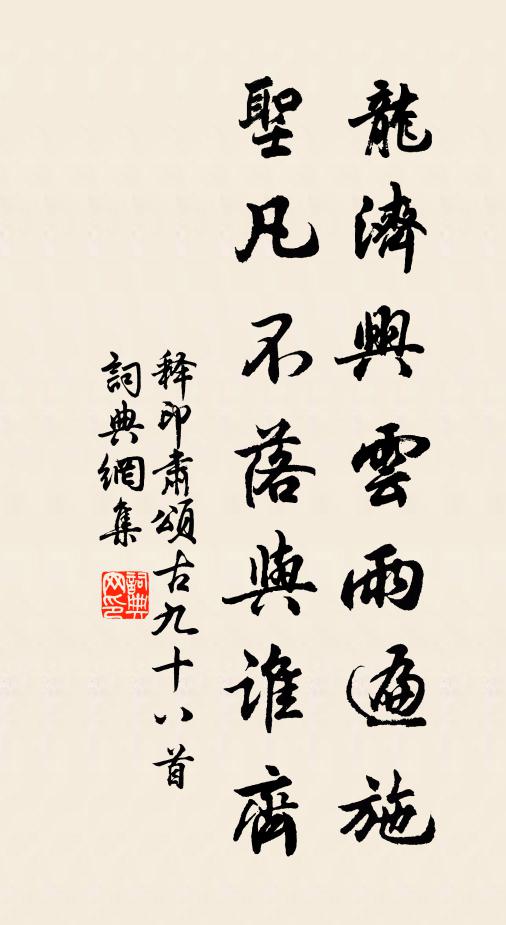 龍濟興雲雨遍施
聖凡不落與誰齊
释印肅頌古九十八首
詞典網集
詞典网印